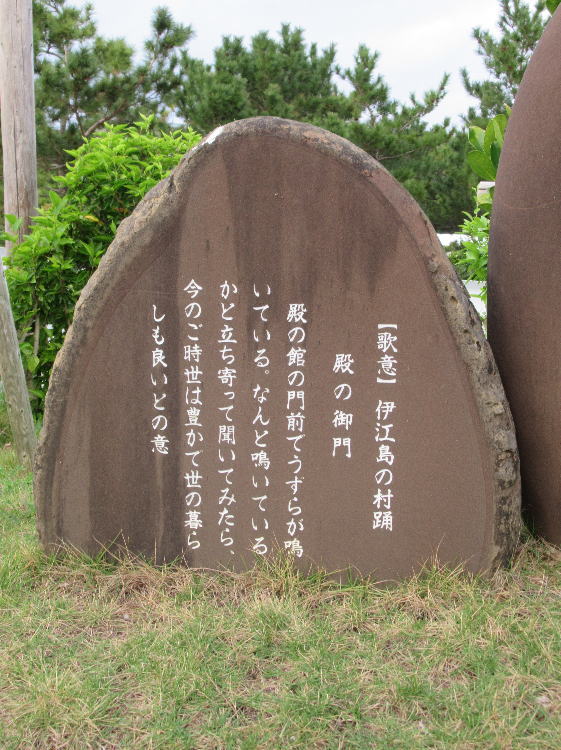 【歌意】伊江島の村踊
殿の御門
殿の館の門前でうずらが鳴
いている。なんと鳴いている
かと立ち寄って聞いてみたら、
今のご時世は豊かで世の暮ら
しも良いとの意